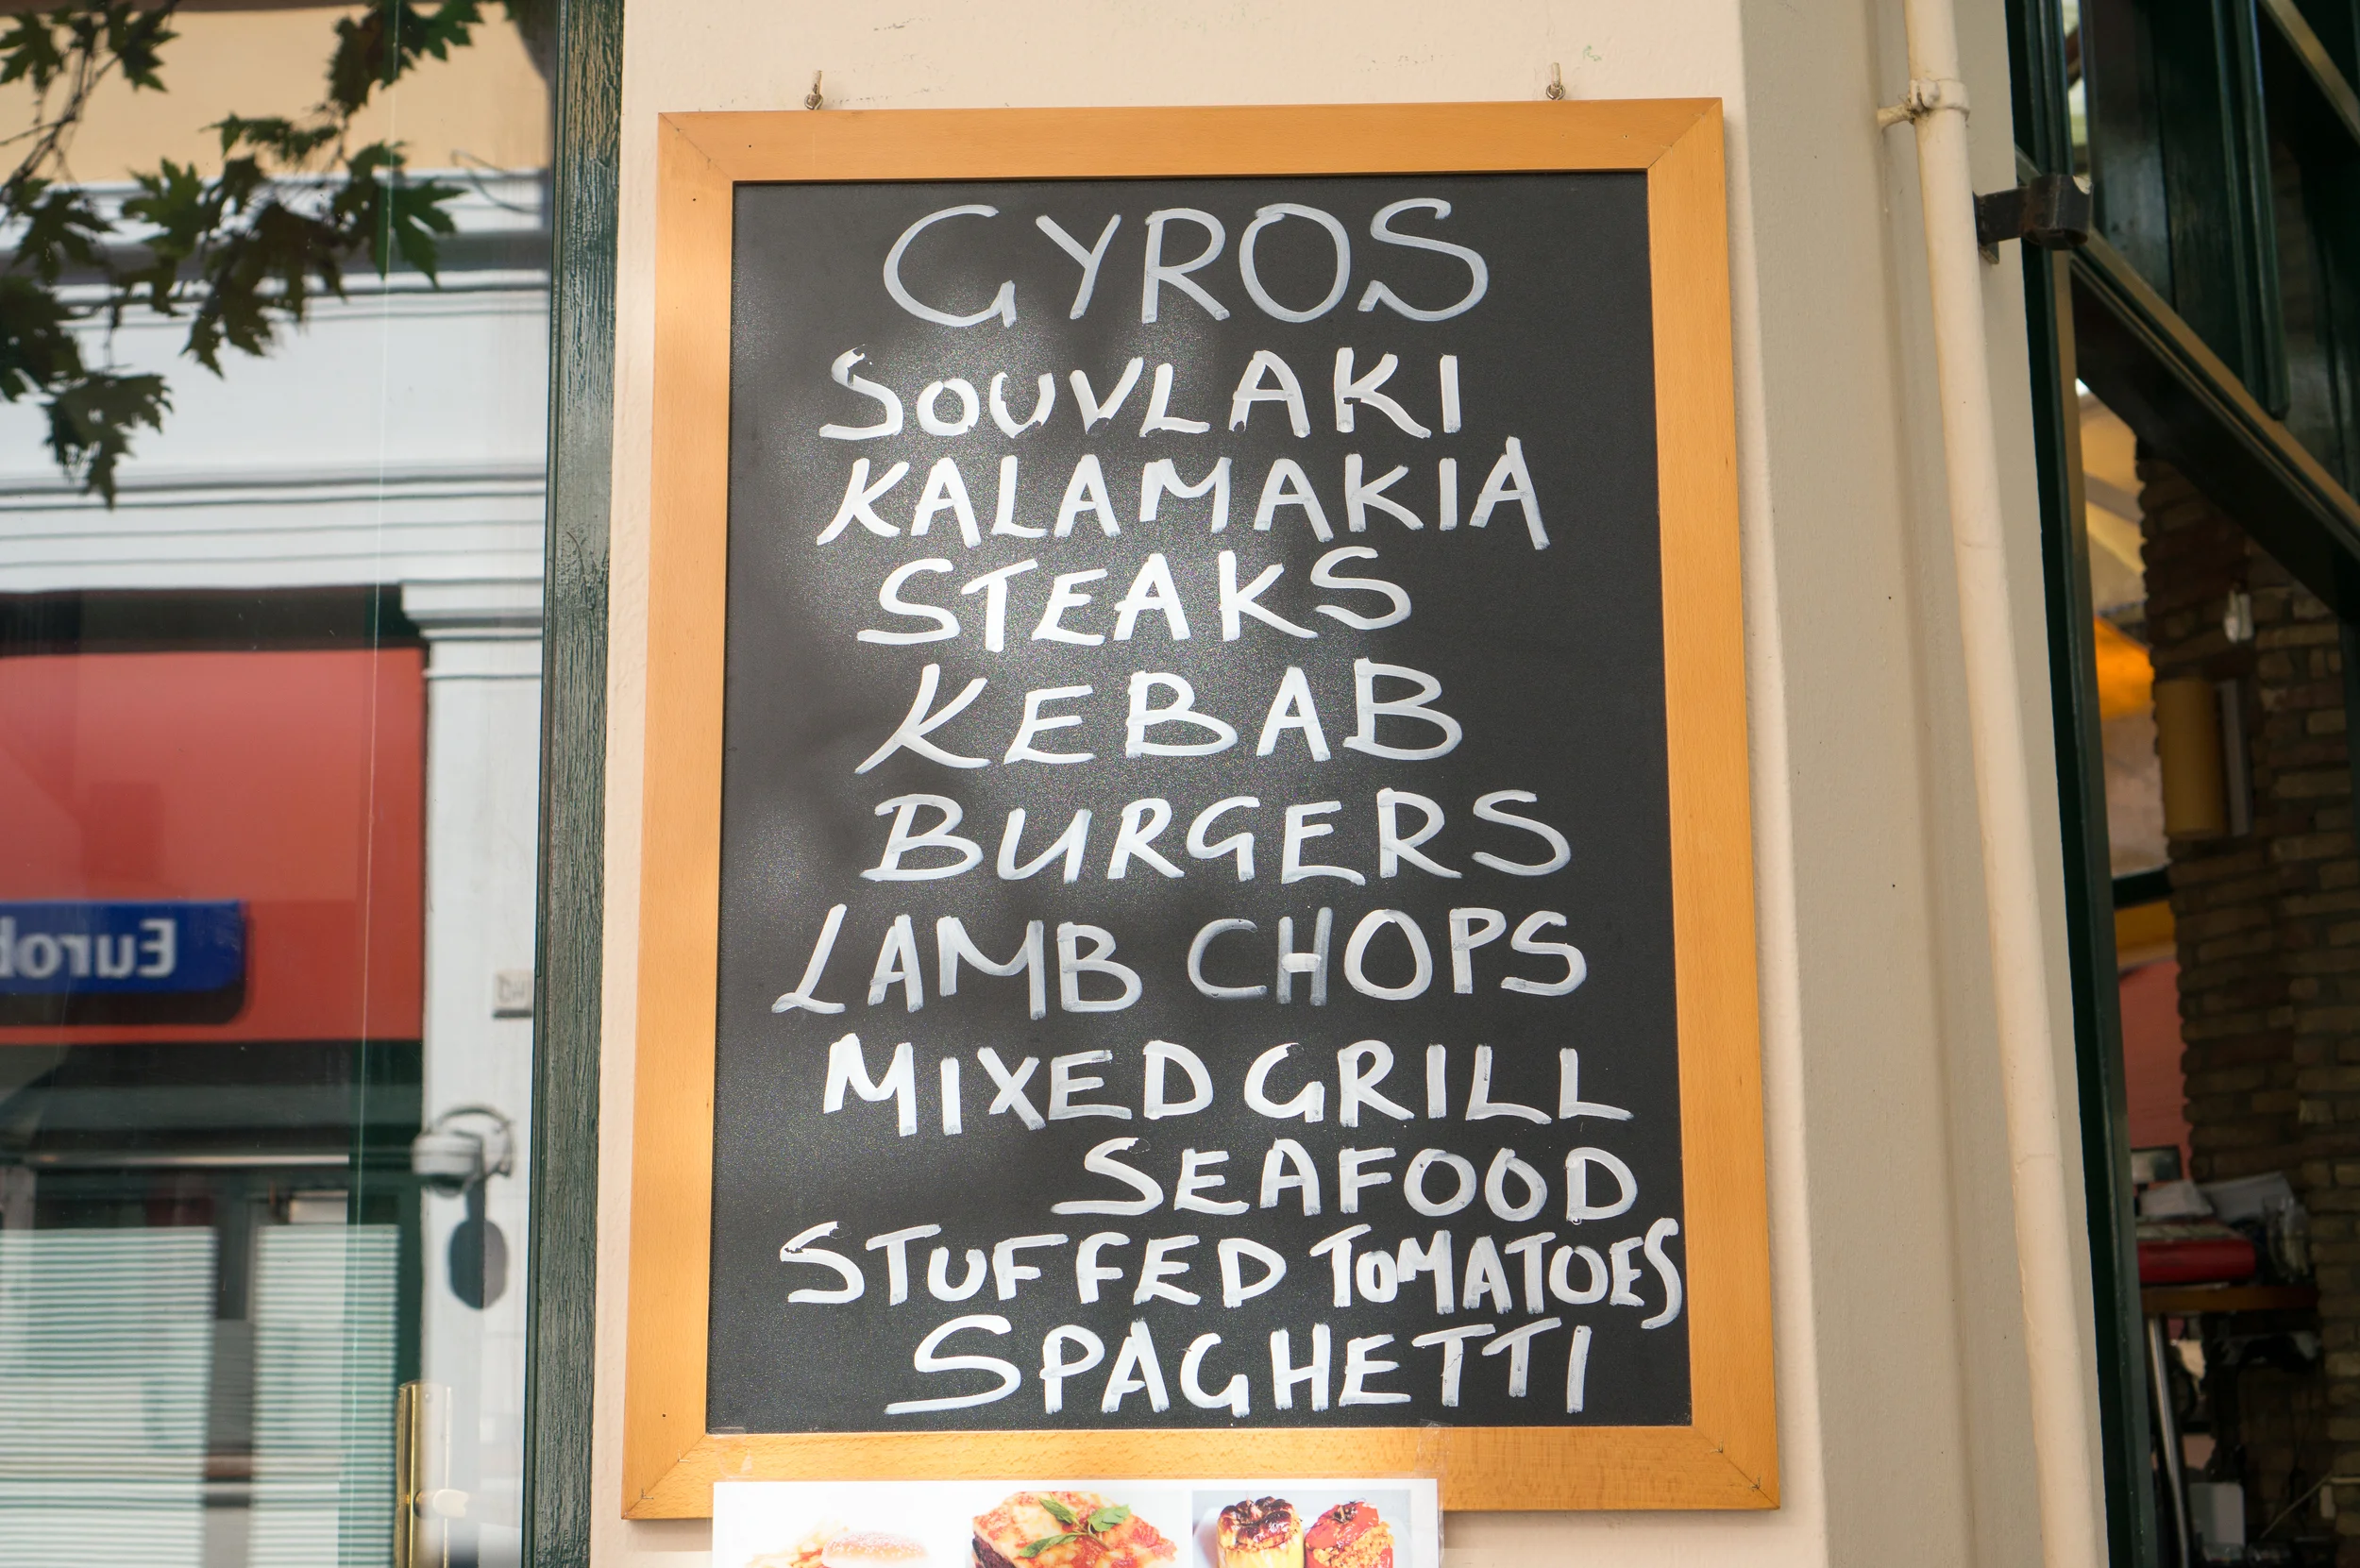 GYROS
SOUVLAKI
KALAMAKIA
STEAKS
KEBAB
BURGERS
LAMB CHOPS
MIXED GRILL
SEAFOOD
STUFFED TOMATOES
SPAGHETTI
Eurob